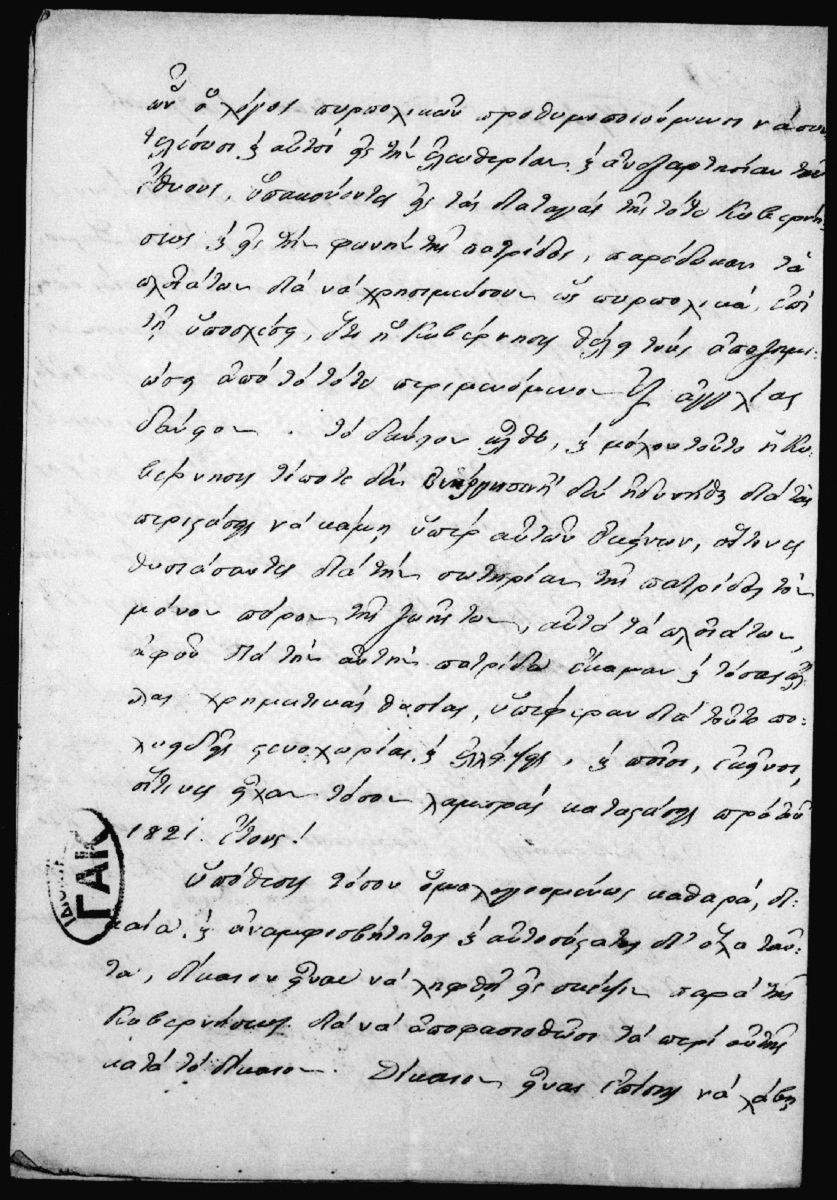 ὧν ὁ λόγος πυρπολικῶν προθυμοποιούμενοι νὰ συν
τελέσωσι κ αὐτοὶ εἰς τὴν ἐλευθερίαν κ ἀνεξαρτησίαν τοῦ
ἔθνους, ὑπακούοντες εἰς τὰς διαταγὰς τῆς τότε Κυβερνή-
σεως κ εἰς τὴν φωνὴν τῆς πατρίδος, παρέδωκαν τὰ
πλοῖά των διὰ νὰ χρησιμεύσουν ὡς πυρπολικά, ἐπὶ
τῇ ὑποσχέσει, ὅτι ἡ Κυβέρνησις θέλει τοὺς ἀποζημι-
ώσει ἀπὸ τὸ τότε περιμενόμενον ἐξ ἀγγλίας
δάνειον. τὸ δάνειον ἦλθε, κ μόλον τοῦτο ἡ Κυ-
βέρνησις τίποτε δὲν δὲν ἠδυνήθη διὰ τὰς
περιστάσεις νὰ κάμῃ ὑπὲρ αὐτῶν ἐκείνων, οἵτινες
θυσιάσαντες διὰ τὴν σωτηρίαν τῆς πατρίδος τὸν
μόνον πόρον τῆς ζωῆς των, αὐτὰ τὰ πλοῖά των,
ἀφοῦ διὰ τὴν αὐτὴν πατρίδα ἔκαμαν κ τόσας ἄλ
λας χρηματικὰς θυσίας, ὑπέφεραν διὰ τοῦτο πο-
λυειδεῖς στενοχωρίας κ ἐλλείψεις, κ ποῖοι, ἐκεῖνοι,
οἵτινες εἶχαν τόσον λαμπρὰς καταστάσεις πρὸ τοῦ
1821 ἔτους!
Ὑπόθεσις τόσον ὁμολογουμένως καθαρά, δι-
καία κ ἀναμφισβήτητος κ δι' ὅλα ταῦ-
τα, δίκαιον εἶναι νὰ ληφθῇ εἰς σκέψιν παρὰ τῆς
Κυβερνήσεως διὰ νὰ ἀποφασισθῶσι τὰ περὶ αὐτῆς
κατὰ τὸ δίκαιον. Δίκαιον εἶναι ἐπίσης νὰ λάβῃ
ΓΑΚ